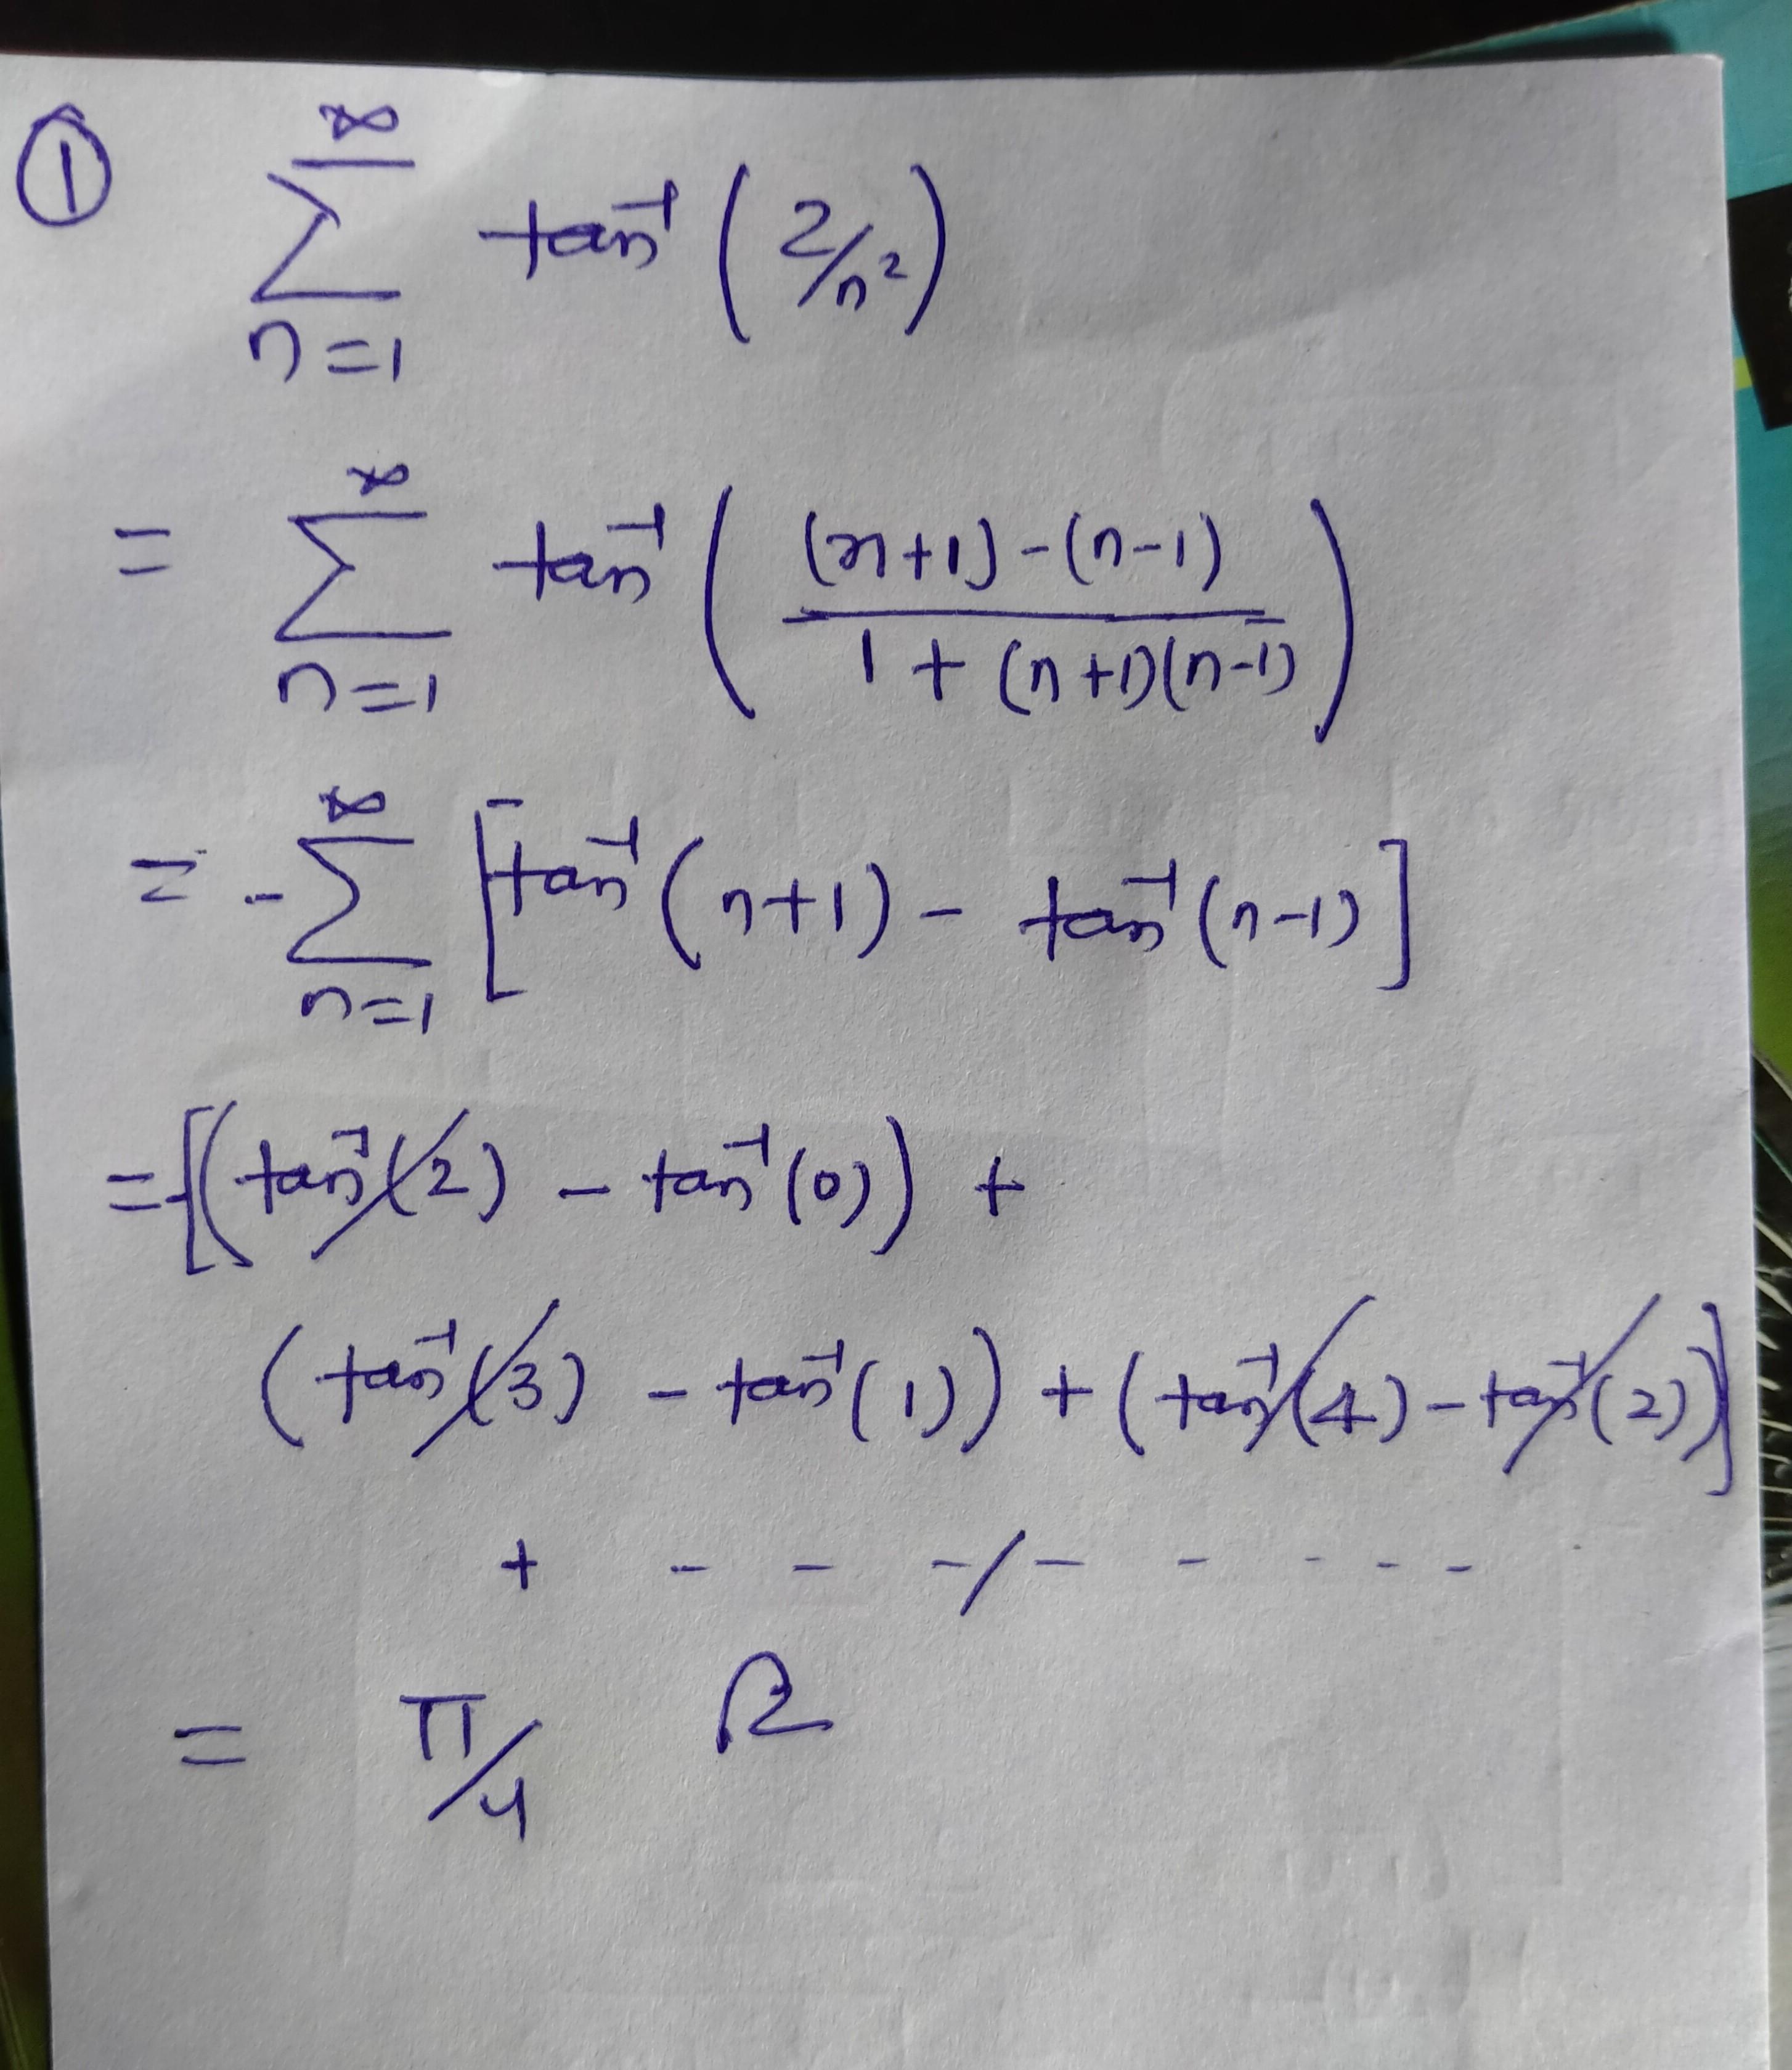 ① ∑_{n=1}^{∞} tan⁻¹ (2/n²)
= ∑_{n=1}^{∞} tan⁻¹ ( ((n+1)-(n-1)) / (1 + (n+1)(n-1)) )
= -∑_{n=1}^{∞} [tan⁻¹ (n+1) - tan⁻¹ (n-1)]
= -[(tan⁻¹(2) - tan⁻¹(0)) +
(tan⁻¹(3) - tan⁻¹(1)) + (tan⁻¹(4) - tan⁻¹(2))]
+ - - - / - - - - -
= π/4